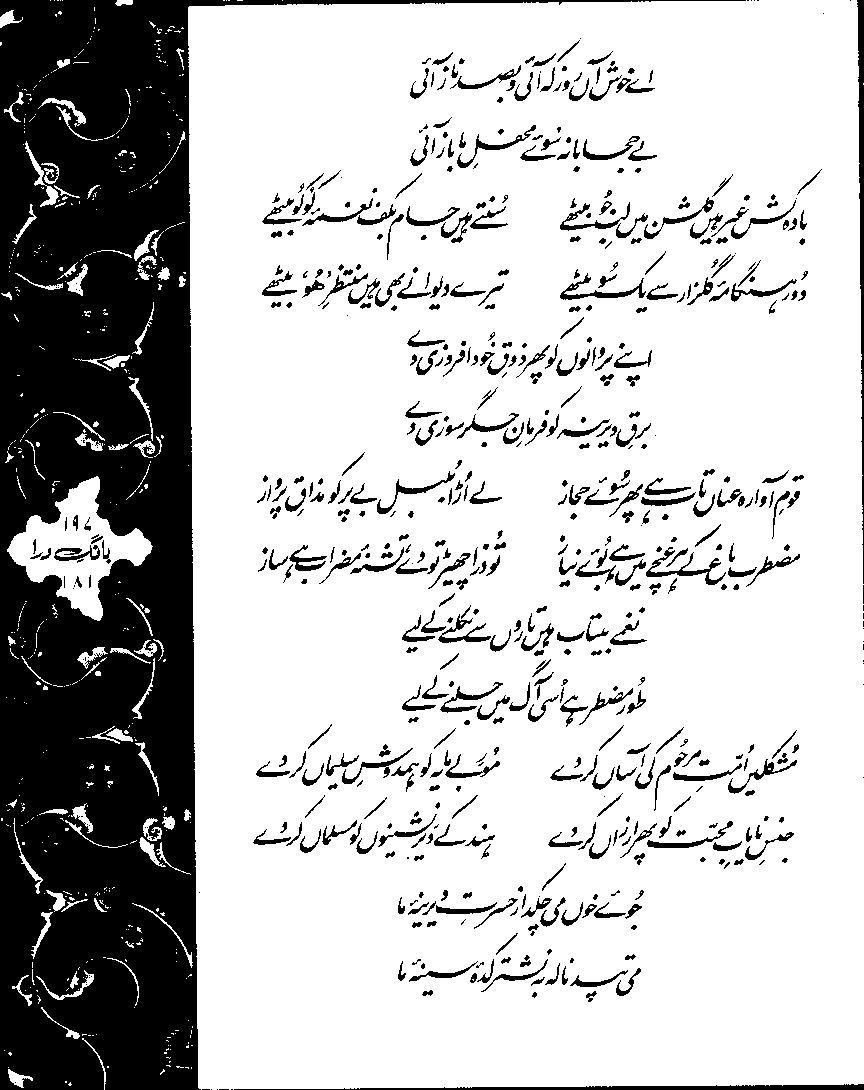 اے خوش آں روز کہ آئی و بصد ناز آئی
بے حجابانہ سُوئے محفلِ ما باز آئی
بادہ کش غیر ہیں گلشن میں لبِ جُو بیٹھے سُنتے ہیں جام بکف نغمۂ کُوکُو بیٹھے
دُور ہنگامۂ گُلزار سے یک سُو بیٹھے تیرے دیوانے بھی ہیں منتظرِ ’ھُو‘ بیٹھے
اپنے پروانوں کو پھر ذوقِ خُود افروزی دے
برقِ دیرینہ کو فرمانِ جگر سوزی دے
قومِ آوارہ عناں تاب ہے پھر سُوئے حجاز لے اُڑا بُلبلِ بے پر کو مذاقِ پرواز
مضطرب باغ کے ہر غنچے میں ہے بُوئے نیاز تُو ذرا چھیڑ تو دے، تشنۂ مضراب ہے ساز
نغمے بیتاب ہیں تاروں سے نکلنے کے لیے
طُور مضطر ہے اُسی آگ میں جلنے کے لیے
مُشکلیں اُمّتِ مرحُوم کی آساں کر دے مُورِ بے مایہ کو ہمدوشِ سلیماں کر دے
جنسِ نایابِ محبّت کو پھر ارزاں کر دے ہند کے دَیر نشینوں کو مسلماں کر دے
جُوئے خوں می چکد از حسرتِ دیرینۂ ما
می تپد نالہ بہ نشتر کدۂ سینۂ ما
۱۹۷
بانگِ درا
۱۸۱